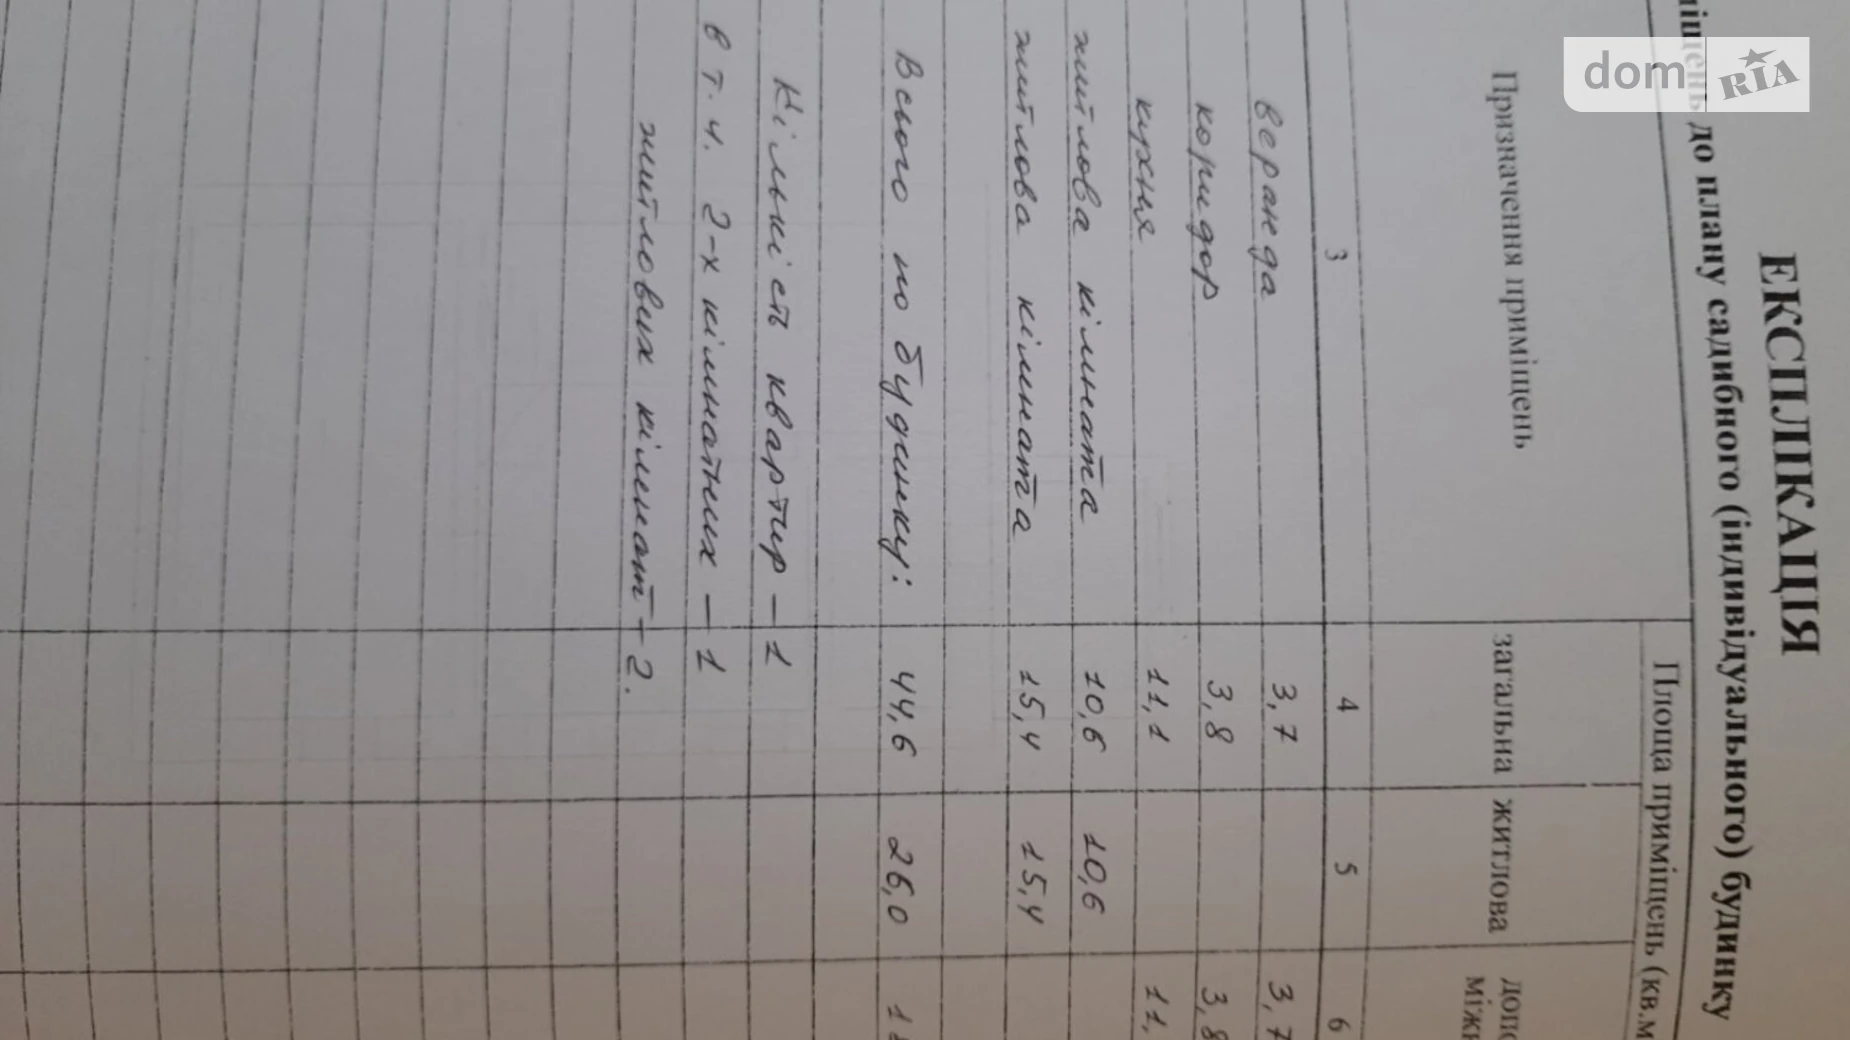 dom RIA
ЕКСПЛІКАЦІЯ
до плану садибного (індивідуального) будинку
Призначення приміщень
Площа приміщень (кв.м
загальна житлова
3 4 5 6
веранда 3,7 3,7
коридор 3,8 3,8
кухня 11,1 11,
житлова кімната 10,6 10,6
житлова кімната 15,4 15,4
Всього по будинку: 44,6 26,0
Кількість квартир – 1
в т.ч. 2-х кімнатних – 1
житлових кімнат – 2.